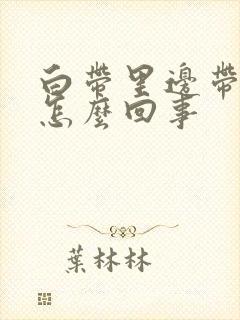 白帶里邊帶
怎麼回事
葉林林